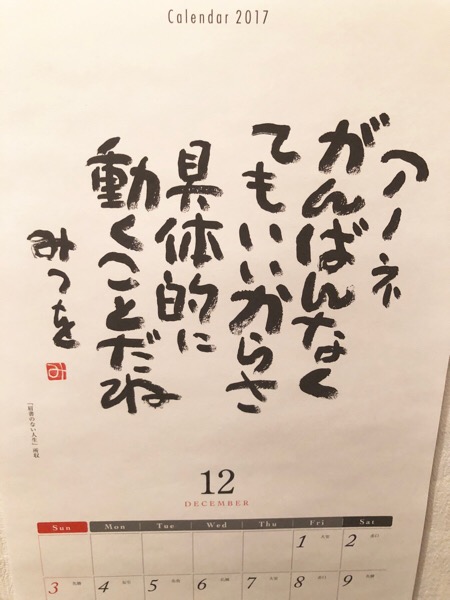 Calendar 2017
アノネ
がんばんなく
てもいいからさ
具体的に
動くことだね
みつを
み
「肩書のない人生」所収
12
DECEMBER
Sun Mon Tue Wed Thu Fri Sat
1 2
3 4 5 6 7 8 9